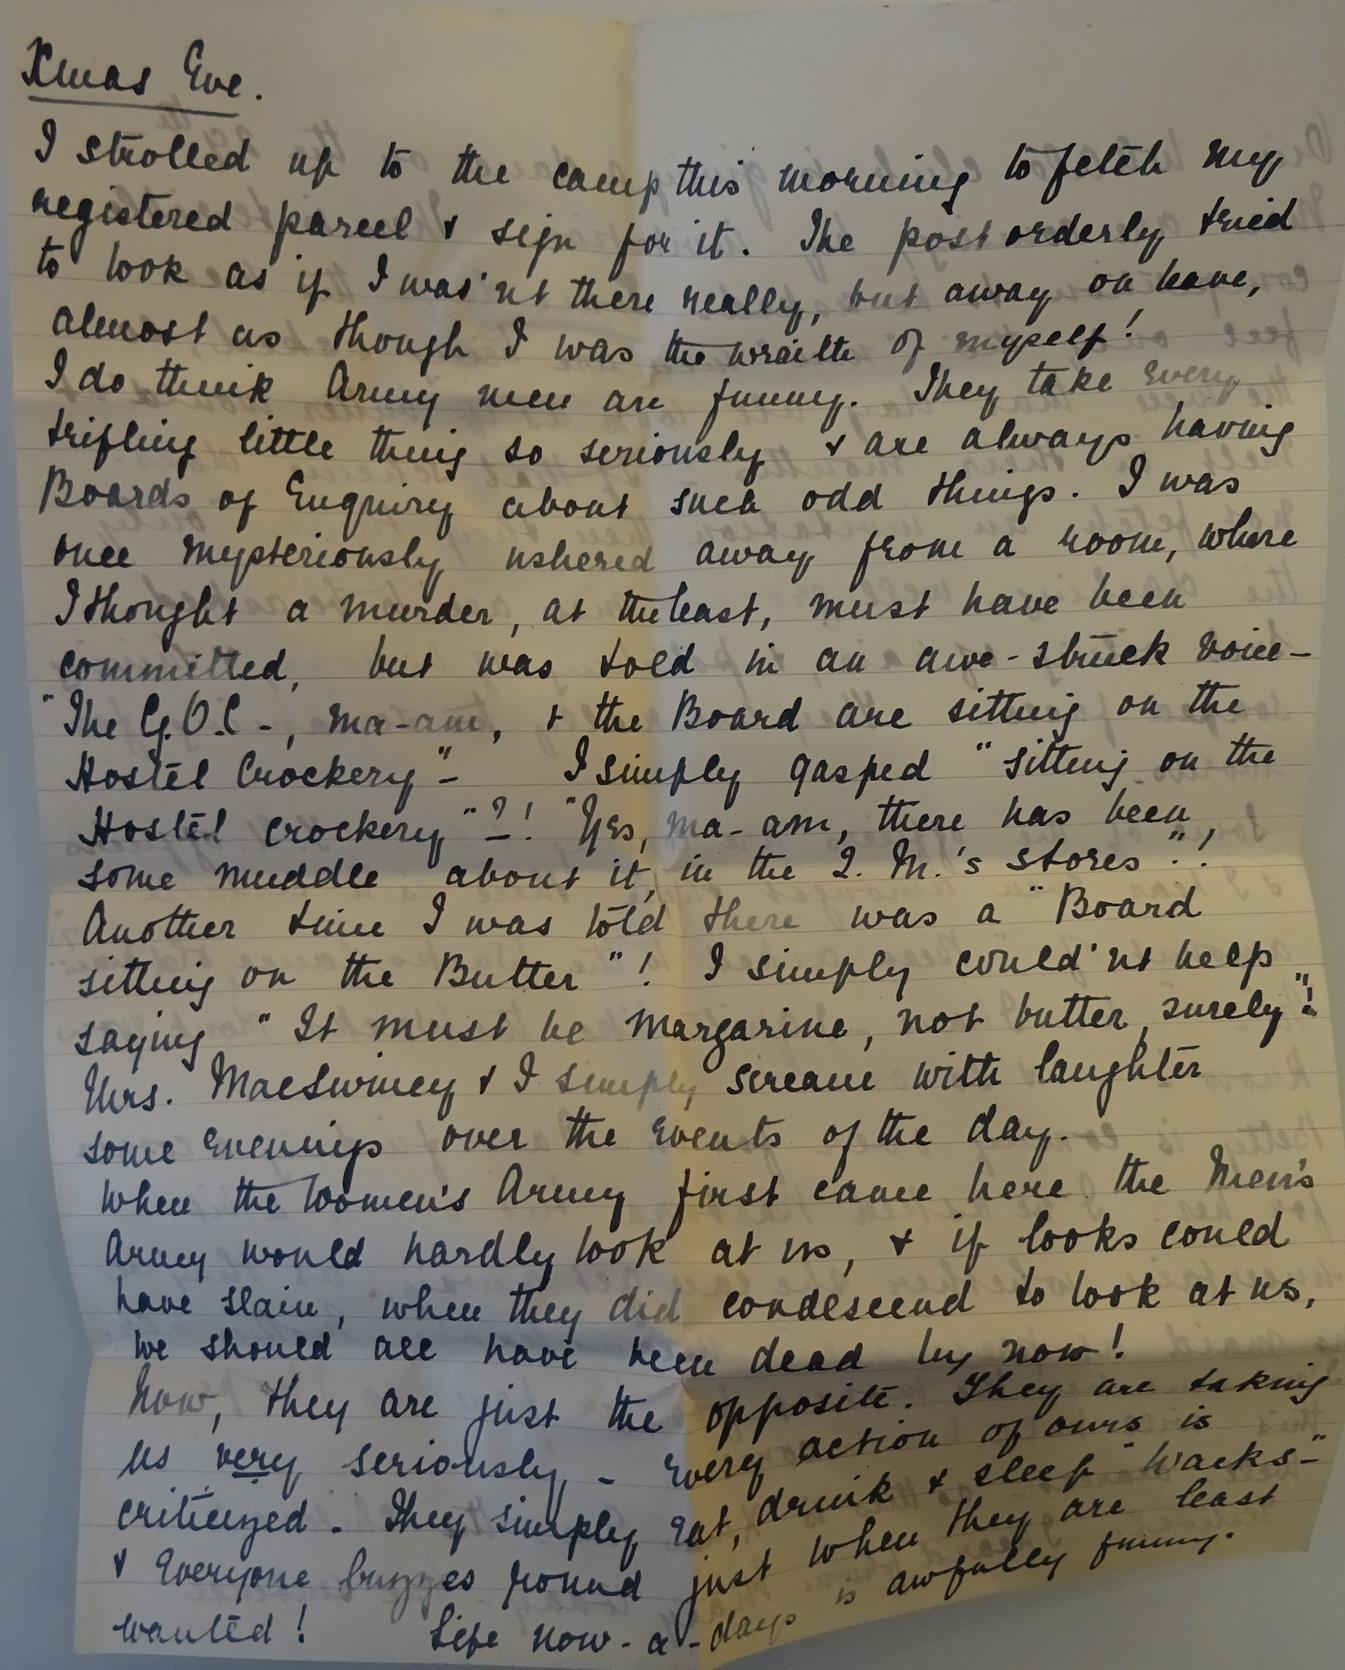 Xmas Eve.
I strolled up to the camp this morning to fetch my
registered parcel & sign for it. The post orderly tried
to look as if I was'nt there really, but away on leave,
almost as though I was the wraith of myself!
I do think Army men are funny. They take every
trifling little thing so seriously & are always having
Boards of Enquiry about such odd things. I was
once mysteriously ushered away from a room, where
I thought a murder, at the least, must have been
committed, but was told in an awe-struck voice—
"The G.O.C-, ma-am, & the Board are sitting on the
Hostel Crockery"- I simply gasped "sitting on the
Hostel crockery"?! "Yes, ma-am, there has been
some muddle about it, in the Q.M.'s stores"!
Another time I was told there was a "Board
sitting on the Butter"! I simply could'nt help
saying "It must be margarine, not butter, surely"!
Mrs. MacSwiney & I simply scream with laughter
some evenings over the events of the day.
When the Women's Army first came here the Men's
Army would hardly look at us, & if looks could
have slain, when they did condescend to look at us,
we should all have been dead by now!
Now, they are just the opposite. They are taking
us very seriously - every action of ours is
criticized. They simply eat, drink & sleep "Waacks-"
& everyone buzzes round just when they are least
wanted! Life now-a-days is awfully funny.